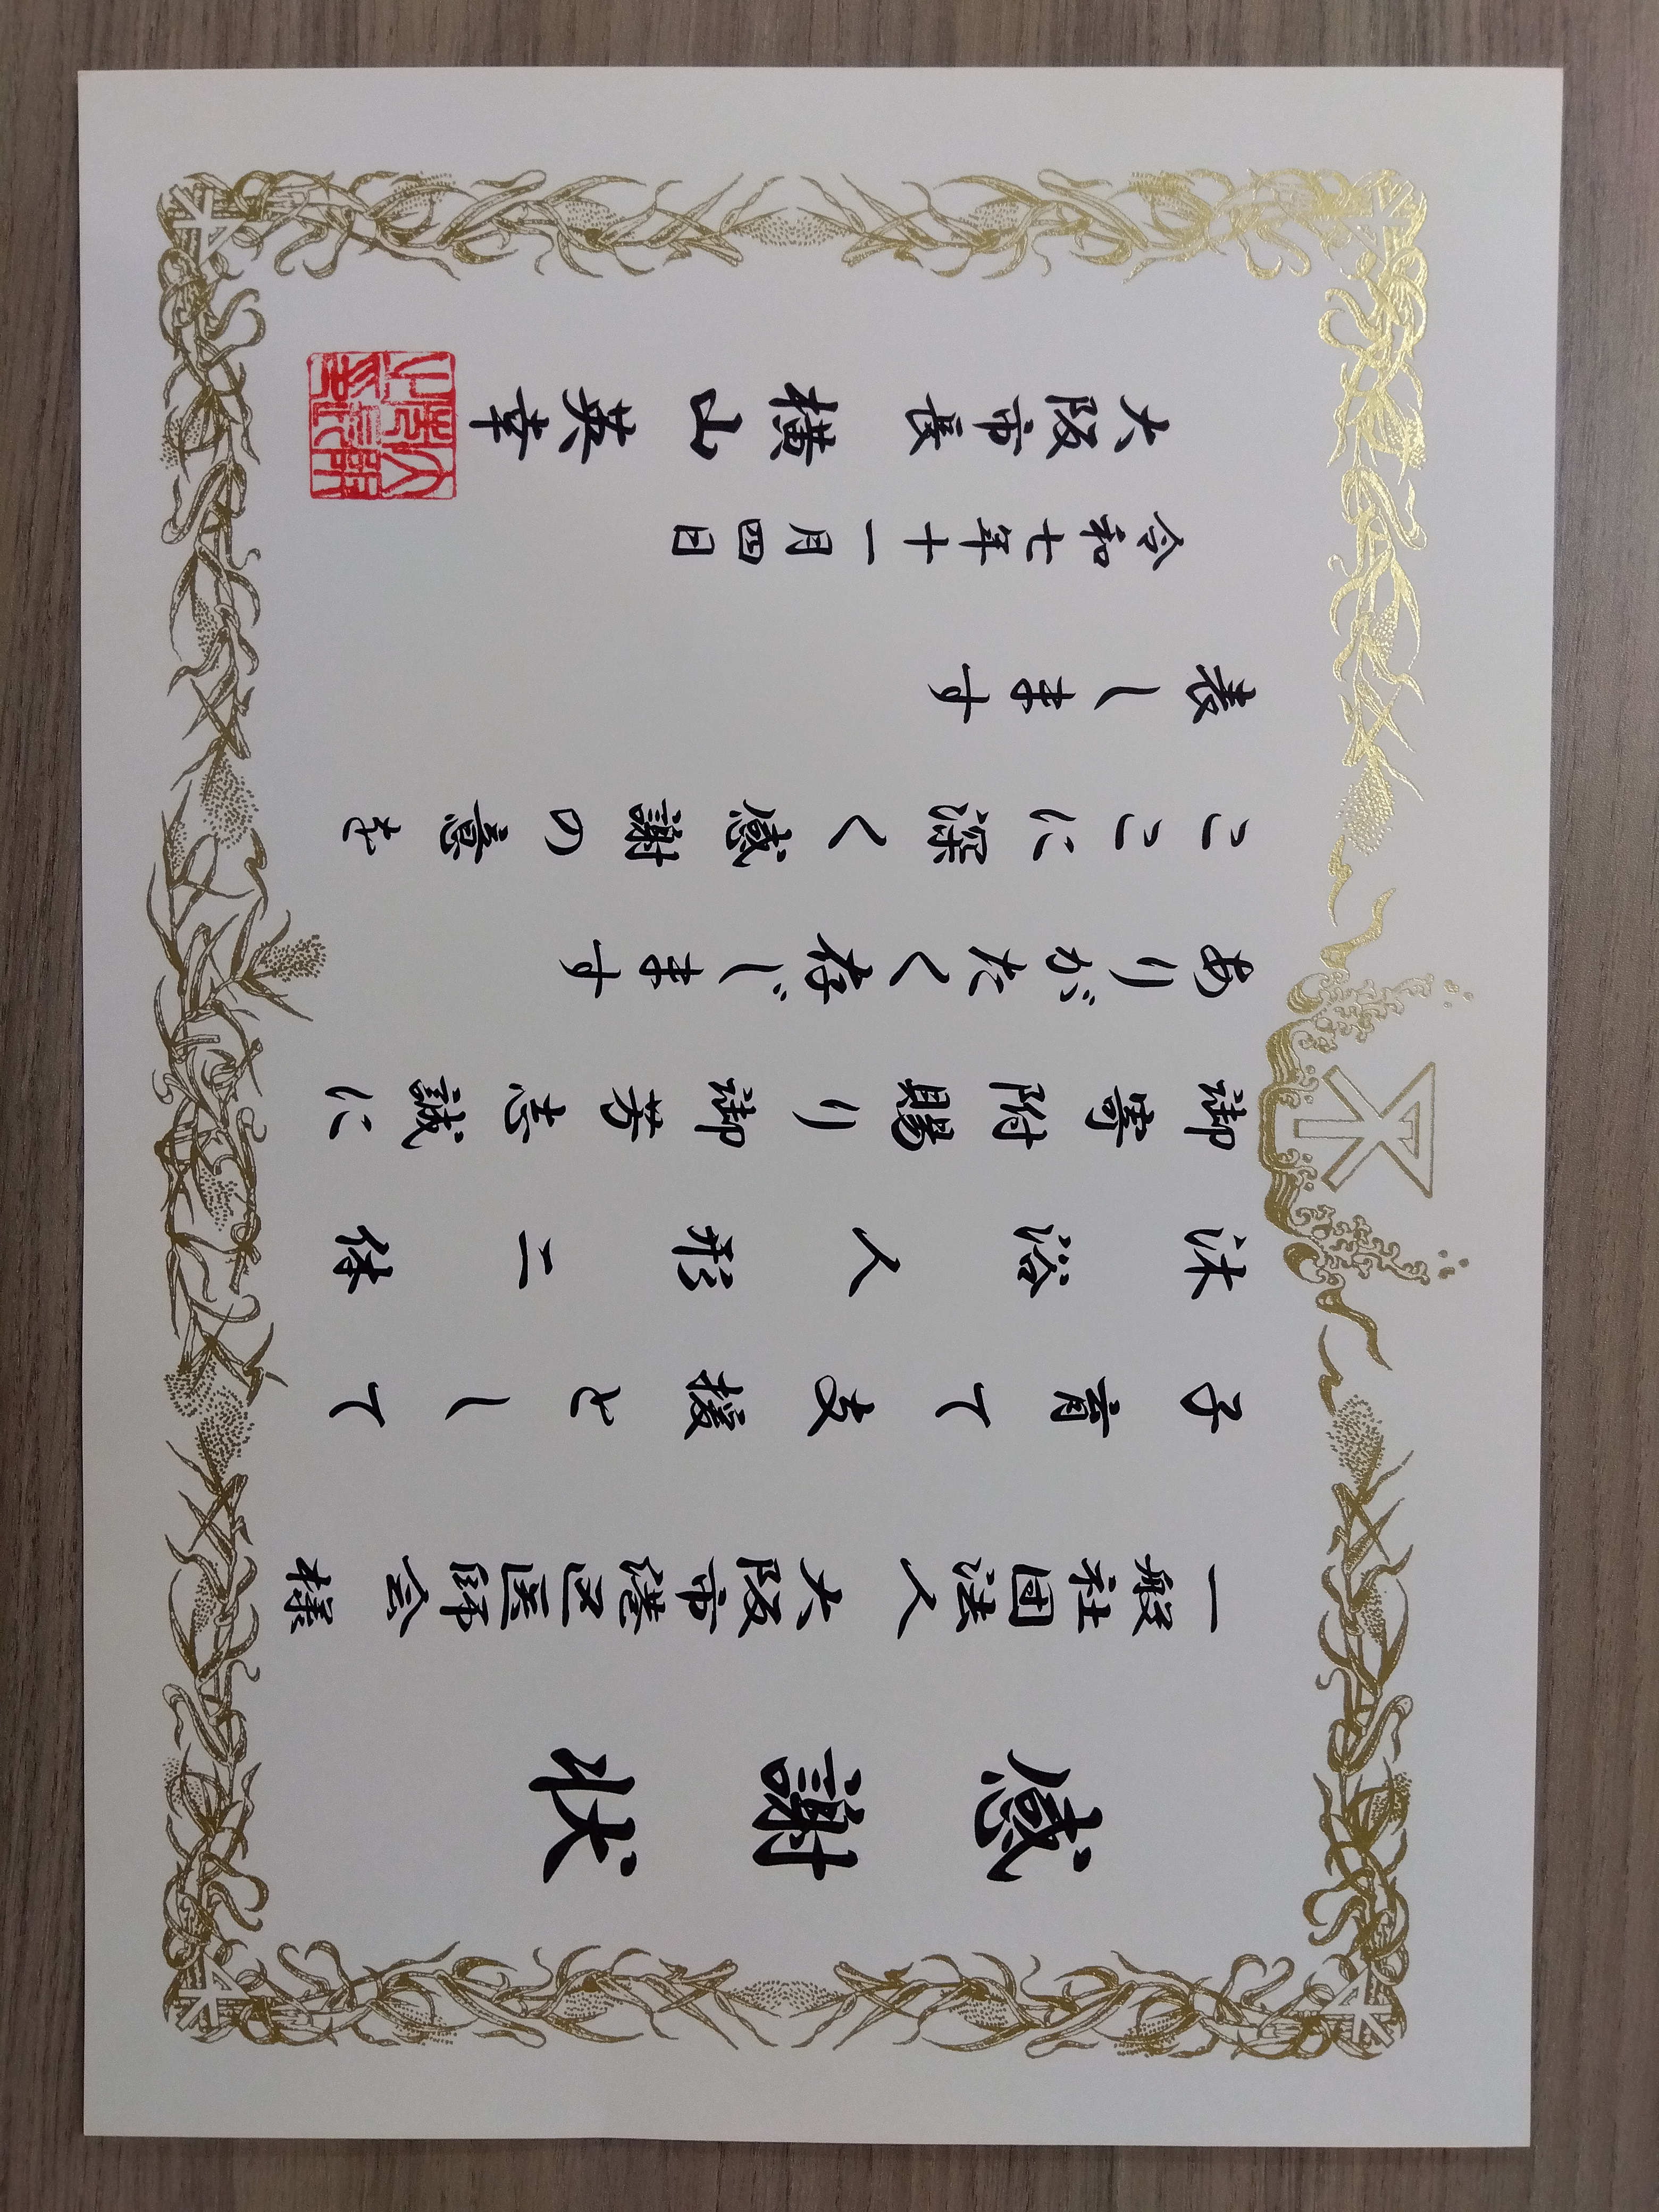 感謝状
一般社団法人 大阪市港区医師会 様
子育て支援として
沐浴人形二体
御寄附賜り御芳志誠に
ありがたく存じます
ここに深く感謝の意を
表します
令和七年十一月四日
大阪市長 横山英幸